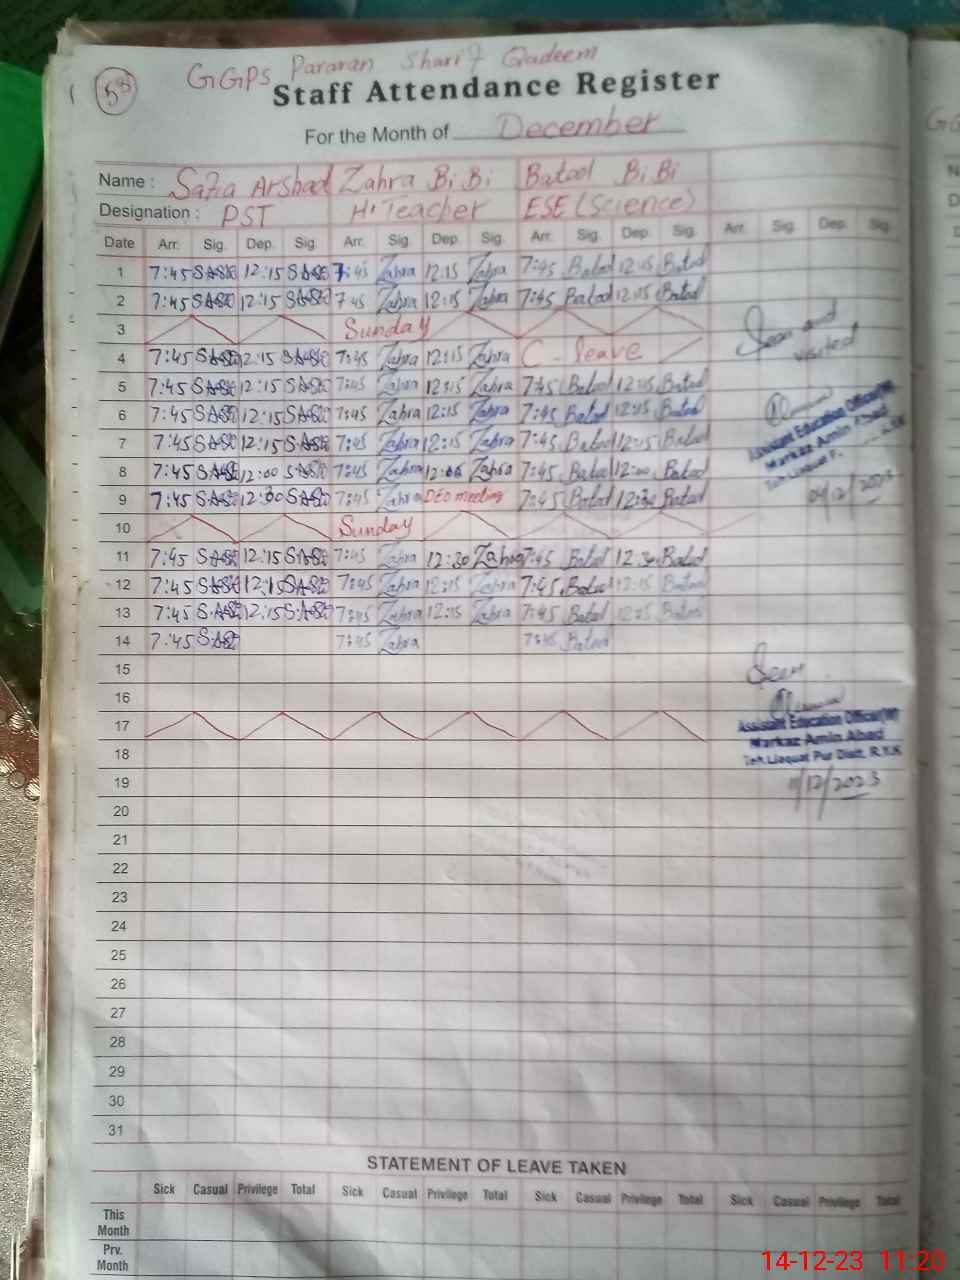 58
GGPS Pararan Sharif Qadeem
Staff Attendance Register
For the Month of December
Name : Safia Arshad Zahra Bi Bi Batool Bi Bi
Designation : PST H·Teacher ESE (Science)
Date Arr. Sig. Dep. Sig. Arr. Sig. Dep. Sig. Arr. Sig. Dep. Sig. Arr. Sig. Dep. Sig.
1 7:45 12:15 7:45 Zahra 12:15 Zahra 7:45 Batool 12:15 Batool
2 7:45 12:15 7:45 Zahra 12:15 Zahra 7:45 Batool 12:15 Batool
3 Sunday
Seen and
visited
4 7:45 12:15 7:45 Zahra 12:15 Zahra C- leave
5 7:45 12:15 7:45 Zahra 12:15 Zahra 7:45 Batool 12:15 Batool
6 7:45 12:15 7:45 Zahra 12:15 Zahra 7:45 Batool 12:15 Batool
Assistant Education Officer(W)
Markaz Amin Abad
7 7:45 12:15 7:45 Zahra 12:15 Zahra 7:45 Batool 12:15 Batool
Teh.Liaquat P.
8 7:45 12:00 7:45 Zahra 12:00 Zahra 7:45 Batool 12:00 Batool
04/12/2023
9 7:45 12:30 7:45 Zahra DEO meeting 7:45 Batool 12:30 Batool
10 Sunday
11 7:45 12:15 7:45 Zahra 12:30 Zahra 7:45 Batool 12:30 Batool
12 7:45 12:15 7:45 Zahra 12:15 Zahra 7:45 Batool 12:15 Batool
13 7:45 12:15 7:45 Zahra 12:15 Zahra 7:45 Batool 12:15 Batool
14 7:45 7:45 Zahra 7:45 Batool
15
Seen
16
17
Assistant Education Officer(W)
Markaz Amin Abad
18
Teh.Liaquat Pur Distt. R.Y.K
19
11/12/2023
20
21
22
23
24
25
26
27
28
29
30
31
STATEMENT OF LEAVE TAKEN
Sick Casual Privilege Total Sick Casual Privilege Total Sick Casual Privilege Total Sick Casual Privilege Total
This
Month
Prv.
Month
14-12-23 11:20